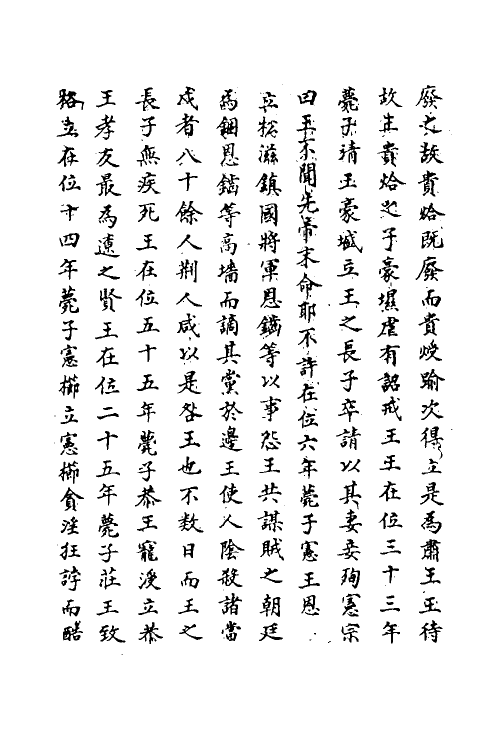 廢之故貴烚既廢而貴㷆踰次得立是為肅王王待
故王貴烚之子豪墭虐有詔戒王王在位三十三年
薨子靖王豪墭立王之長子卒請以其妻妾殉憲宗
曰王不聞先帝末命耶不許在位六年薨子憲王恩
立松滋鎮國將軍恩鑡等以事怨王共謀賊之朝廷
為錮恩鑡等高墻而謫其黨於邊王使人陰殺諸當
戍者八十餘人荊人咸以是咎王也不數日而王之
長子無疾死王在位五十五年薨子恭王寵涭立恭
王孝友最為遼之賢王在位二十五年薨子莊王致
格立在位十四年薨子憲㸅立憲㸅貪淫狂誖而酷